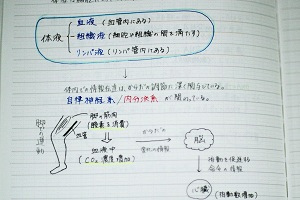 血液（血管内にある）
体液 組織液（細胞や組織の間を満たす）
リンパ液（リンパ管内にある）
体内での情報伝達は、からだの調節に深く関与している。
自律神経系／内分泌系が関わっている。
脚の運動
脚の筋肉
（酸素を消費）
血管
血液中
（CO₂濃度増加）
脳
心臓（拍動数増加）